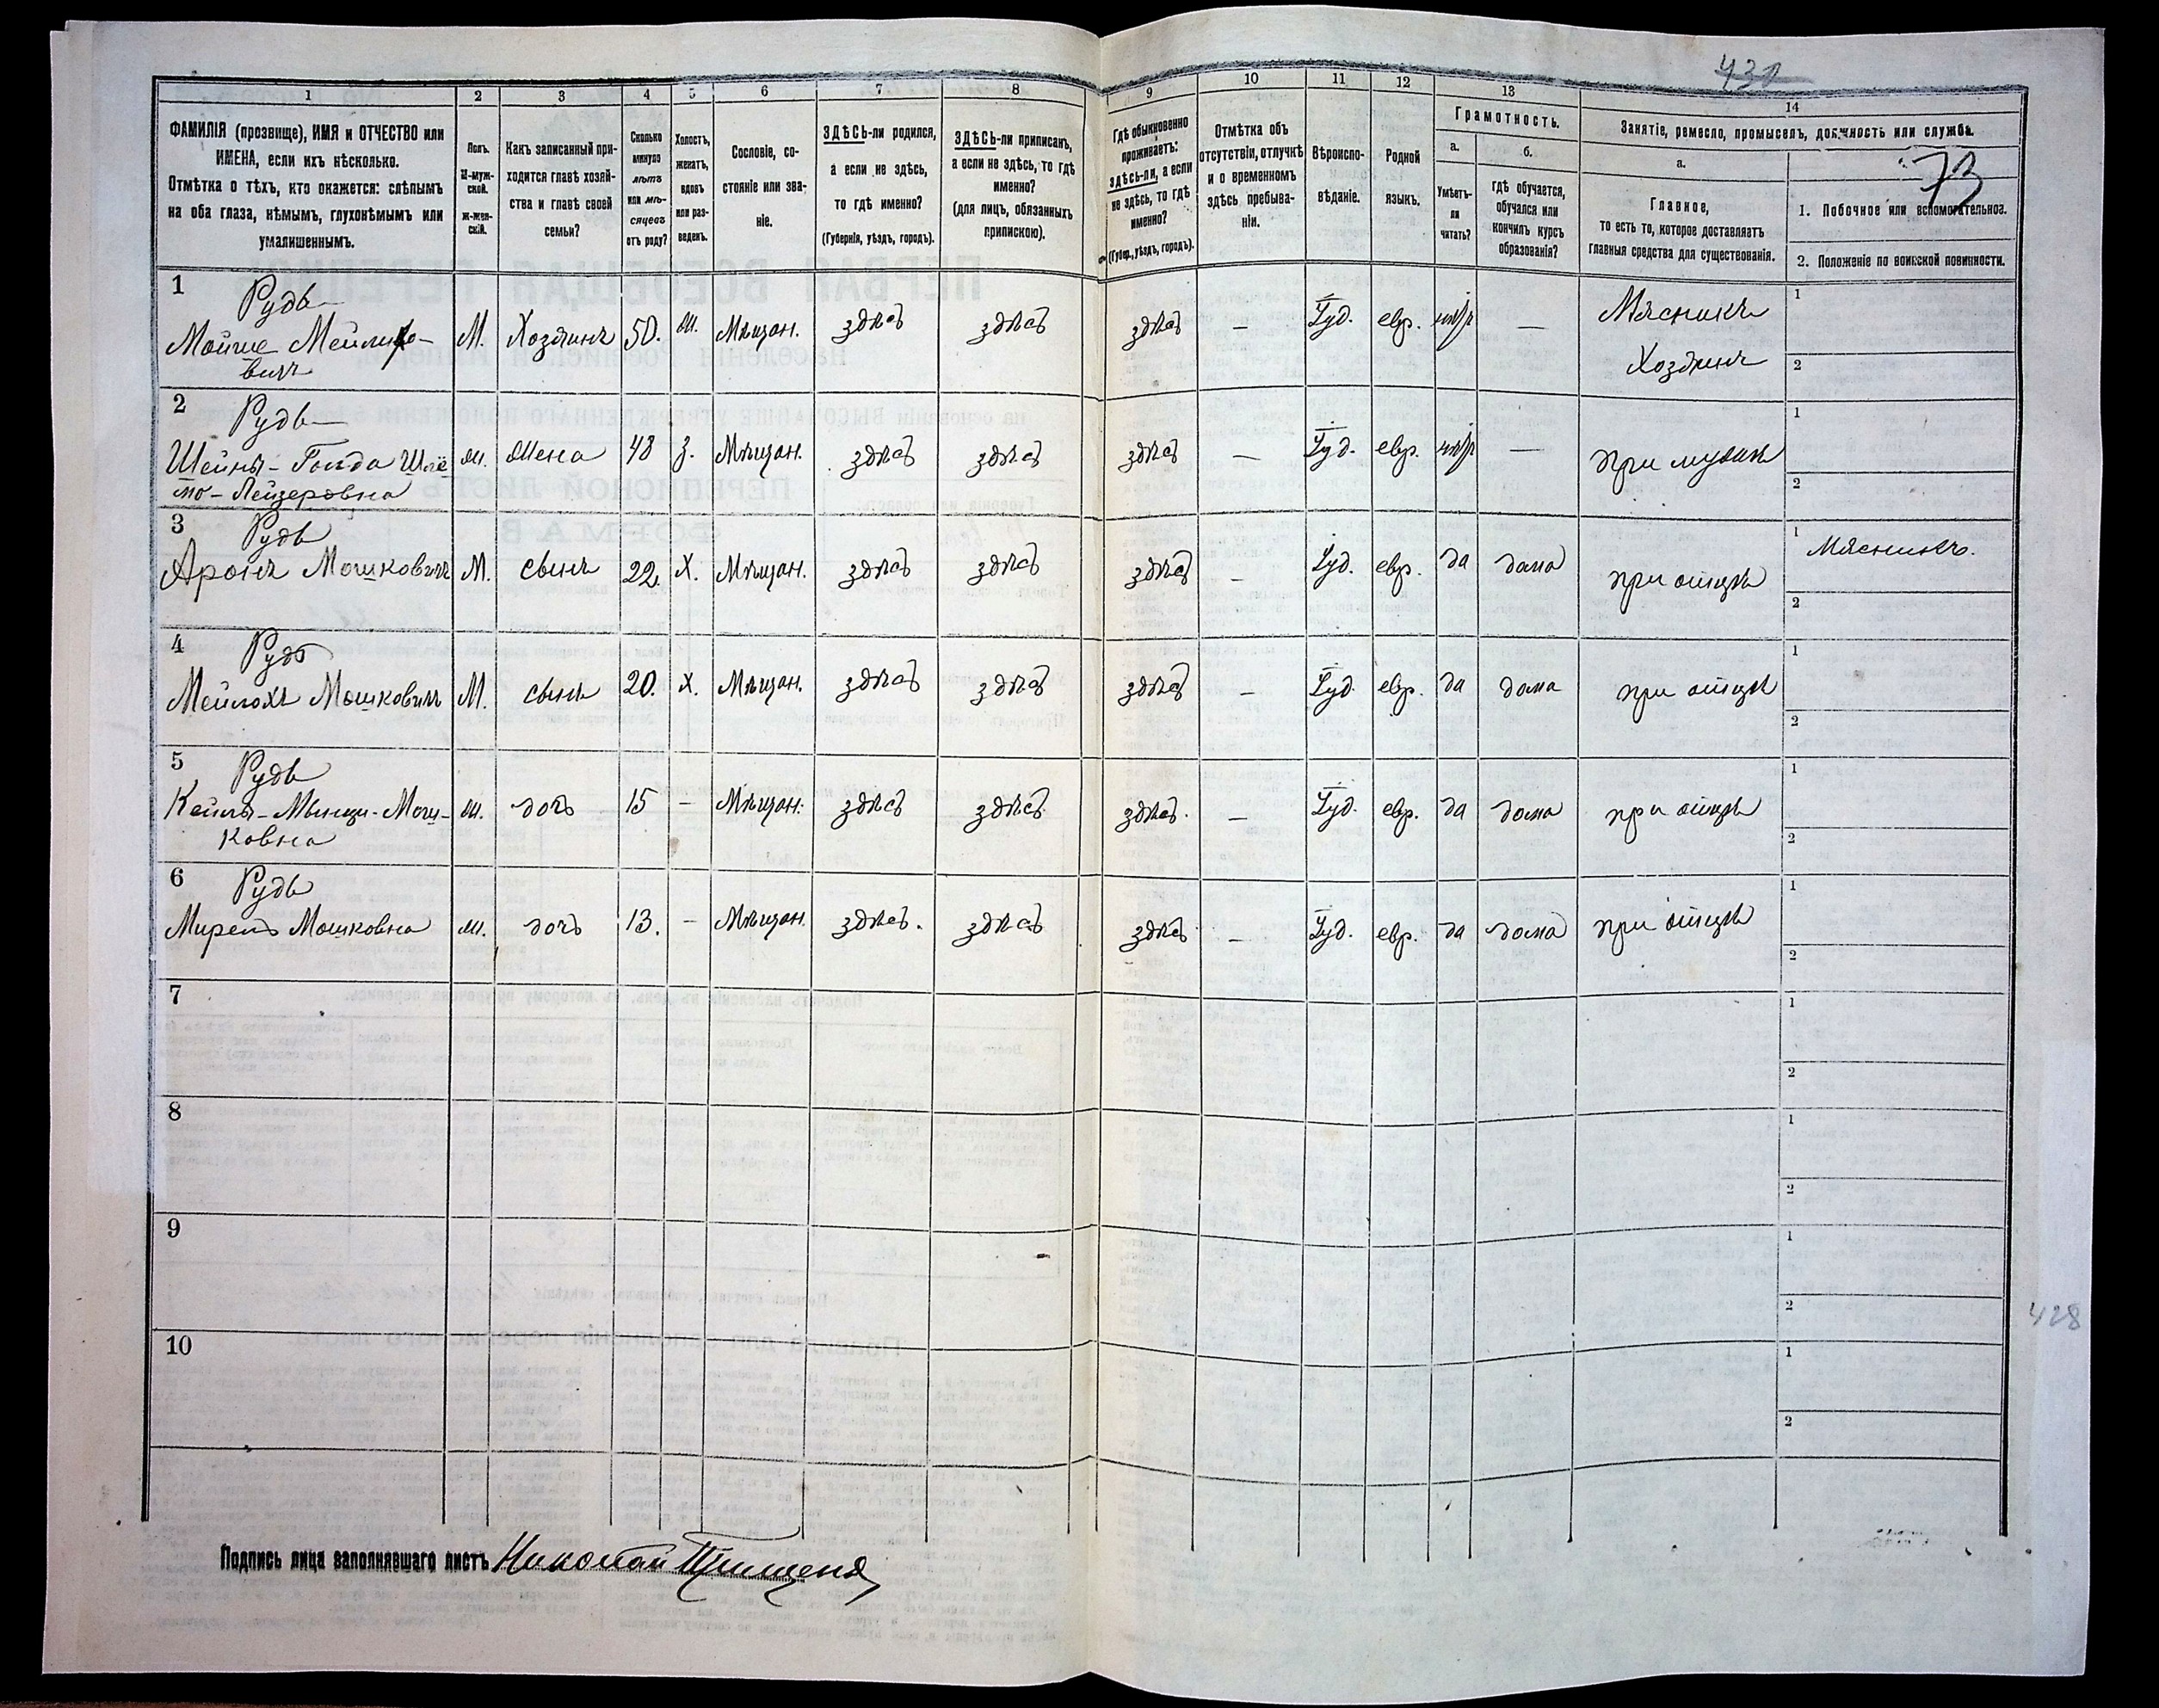 430
73
1 2 3 4 5 6 7 8 9 10 11 12 13 14
ФАМИЛІЯ (прозвище), ИМЯ и ОТЧЕСТВО или
ИМЕНА, если ихъ нѣсколько.
Отмѣтка о тѣхъ, кто окажется: слѣпымъ
на оба глаза, нѣмымъ, глухонѣмымъ или
умалишеннымъ.
Полъ.
М-муж-
ской.
Ж-жен-
скій.
Какъ записанный при-
ходится главѣ хозяй-
ства и главѣ своей
семьи?
Сколько
минуло
лѣтъ
или мѣ-
сяцевъ
отъ роду?
Холостъ,
женатъ,
вдовъ
или раз-
веденъ.
Сословіе, со-
стояніе или зва-
ніе.
ЗДѢСЬ-ли родился,
а если не здѣсь,
то гдѣ именно?
(Губернія, уѣздъ, городъ).
ЗДѢСЬ-ли приписанъ,
а если не здѣсь, то гдѣ
именно?
(для лицъ, обязанныхъ
припискою).
Гдѣ обыкновенно
проживаетъ:
здѣсь-ли, а если
не здѣсь, то гдѣ
именно?
(Губер., уѣздъ, городъ).
Отмѣтка объ
отсутствіи, отлучкѣ
и о временномъ
здѣсь пребыва-
ніи.
Вѣроиспо-
вѣданіе.
Родной
языкъ.
Грамотность.
а.
Умѣетъ-
ли
читать?
б.
гдѣ обучается,
обучался или
кончилъ курсъ
образованія?
Занятіе, ремесло, промыселъ, должность или служба.
а.
Главное,
то есть то, которое доставляетъ
главныя средства для существованія.
1. Побочное или вспомогательное.
2. Положеніе по воинской повинности.
1 Рудь
Мойше Мейлихо-
вичъ
М. Хозяинъ 50. ж. Мѣщан. здѣсь здѣсь здѣсь — Іуд. евр. нѣтъ —
Мясникъ
Хозяинъ
1
2
2 Рудь
Шейня-Голда
Лейзеровна
ж. Жена 48 з. Мѣщан. здѣсь здѣсь здѣсь — Іуд. евр. нѣтъ — при мужѣ
1
2
3 Рудь
Аронъ Мошковичъ М. сынъ 22. Х. Мѣщан. здѣсь здѣсь здѣсь — Іуд. евр. да дома при отцѣ
1 Мясникъ.
2
4 Рудь
Мейлохъ Мошковичъ М. сынъ 20. Х. Мѣщан. здѣсь здѣсь здѣсь — Іуд. евр. да дома при отцѣ
1
2
5 Рудь
Кейля-Мынця-Мош-
ковна
ж. дочь 15 — Мѣщан. здѣсь здѣсь здѣсь. — Іуд. евр. да дома при отцѣ
1
2
6 Рудь
Мирель Мошковна ж. дочь 13. — Мѣщан. здѣсь. здѣсь здѣсь — Іуд. евр. да дома при отцѣ
1
2
7
1
2
8
1
2
9
1
2
428
10
1
2
Подпись лица заполнявшаго листъ Николай